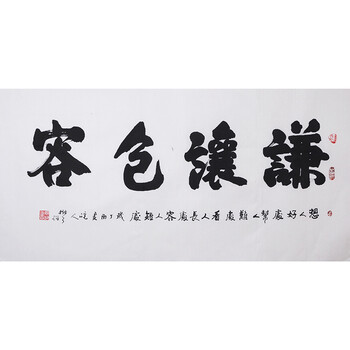 謙讓包容
想人好處幫人難處看人長處容人短處歲丁酉夏